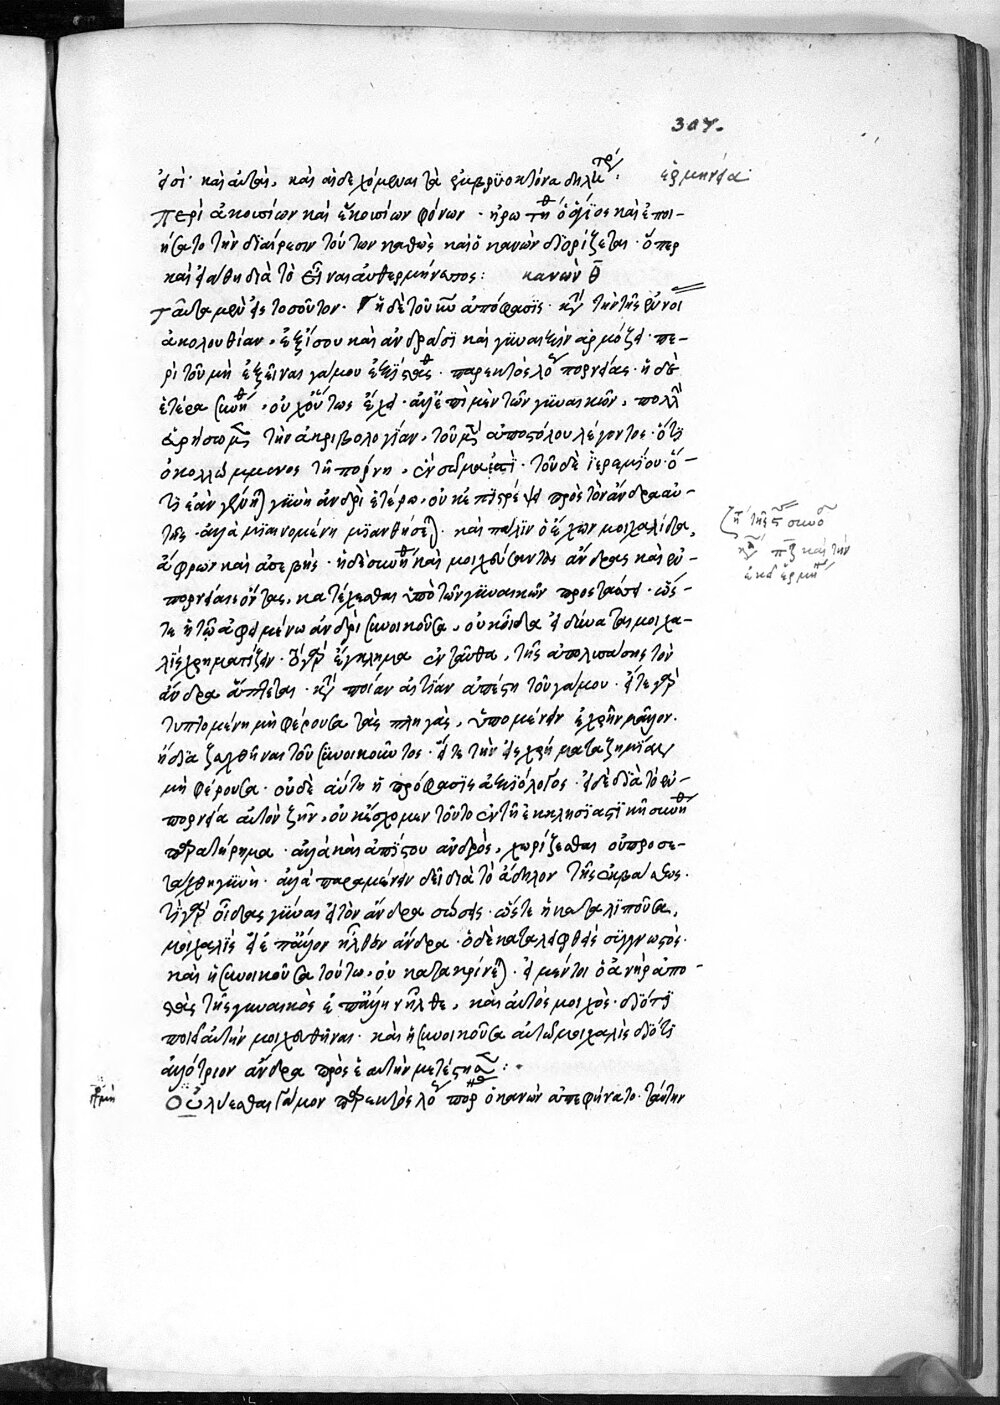 307.
εἰσὶ· καὶ αὐταὶ, καὶ αἱ δεχόμεναι τὰ ἐμβρυοκτόνα δηλητήρ·
ἑρμηνεία
Περὶ ἀκουσίων καὶ ἑκουσίων φόνων· ἠρωτήθη ὁ ἅγιος καὶ ἐποι-
ήσατο τὴν διαίρεσιν τούτων καθὼς καὶ ὁ κανὼν διορίζεται· ὅπερ
καὶ εἰάθη διὰ τὸ εἶναι ἀνερμήνευτος: κανὼν θ̄
ταῦτα μὲν εἰς τοσοῦτον· ἡ δὲ τοῦ κυ ἀπόφασις· κατὰ τὴν τῆς ἐννοί
ἀκολουθίαν, ἐξίσου καὶ ἀνδράσι καὶ γυναιξὶν ἁρμόζει· πε-
ρὶ τοῦ μὴ ἐξεῖναι γάμου ἐξίστασθαι· παρεκτὸς λόγου πορνείας· ἡ δὲ
ἑτέρα συνήθ, οὐχ οὕτως ἔχει· ἀλλ' ἐπὶ μὲν τῶν γυναικῶν, πολλὴν
εὑρίσκομεν τὴν ἀκριβολογίαν, τοῦ μὲν ἀποστόλου λέγοντος· ὅτι
ὁ κολλώμμενος τῇ πόρνῃ, ἓν σῶμα ἐστί· τοῦ δὲ ἱερεμίου· ὅ-
τι ἐὰν γένηται γυνὴ ἀνδρὶ ἑτέρω, οὐκ ἐπιστρέψει πρὸς τὸν ἄνδρα αὐ-
τῆς· ἀλλὰ μιαινομένη μιανθήσεται. καὶ πάλιν ὁ ἔχων μοιχαλίδα,
ἄφρων καὶ ἀσεβής· ἡ δὲ συνήθ καὶ μοιχεύοντας ἄνδρας καὶ ἐν
πορνείαις ὄντας, κατέχεσθαι ὑπὸ τῶν γυναικῶν προστάσσει· ὥσ-
τε ἡ τῷ ἀφειμένω ἀνδρὶ συνοικοῦσα, οὐκ οἶδα εἰ δύναται μοιχα-
λὶς χρηματίζειν· τὸ γὰρ ἔγκλημα ἐνταῦθα, τῆς ἀπολυσάσης τὸν
ἄνδρα ἅπτεται· κατὰ ποίαν αἰτίαν ἀπέστη τοῦ γάμου· εἴτε γὰρ
τυπτομένη μὴ φέρουσα τὰς πληγὰς, ὑπομένειν ἐχρῆν μᾶλλον.
ἢ διαζευχθῆναι τοῦ συνοικοῦντος· εἴτε τὴν εἰς χρήματα ζημίαν
μὴ φέρουσα· οὐδὲ αὕτη ἡ πρόφασις ἀξιόλογος· εἰ δὲ διὰ τὸ ἐν
πορνεία αὐτὸν ζῆν, οὐκ ἔσχομεν τοῦτο ἐν τῇ ἐκκλησιαστικῇ συνηθ
παρατήρημα· ἀλλὰ καὶ ἀπίστου ἀνδρὸς, χωρίζεσθαι οὐ προσε-
τάχθη γυνή· ἀλλὰ παραμένειν δεῖ διὰ τὸ ἄδηλον τῆς ἐκβάσεως.
τί γὰρ οἶδας γύναι εἰ τὸν ἄνδρα σώσεις· ὥστε ἡ καταλιποῦσα,
μοιχαλὶς εἰ ἐπ' ἄλλον ἦλθεν ἄνδρα· ὁ δὲ καταλειφθεὶς συγγνωστὸς·
καὶ ἡ συνοικοῦσα τούτω, οὐ κατακρίνεται· εἰ μέντοι ὁ ἀνὴρ ἀπο-
στὰς τῆς γυναικὸς ἐπ' ἄλλην ἦλθε, καὶ αὐτὸς μοιχὸς· διότι
ποιεῖ αὐτὴν μοιχευθῆναι· καὶ ἡ συνοικοῦσα αὐτῶ μοιχαλὶς διότι
ἀλλότριον ἄνδρα πρὸς ἑαυτὴν μετέστησε:·
Οὐ λύεσθαι γάμον παρεκτὸς λόγου πορ ὁ κανὼν ἀπεφήνατο· ταύτην